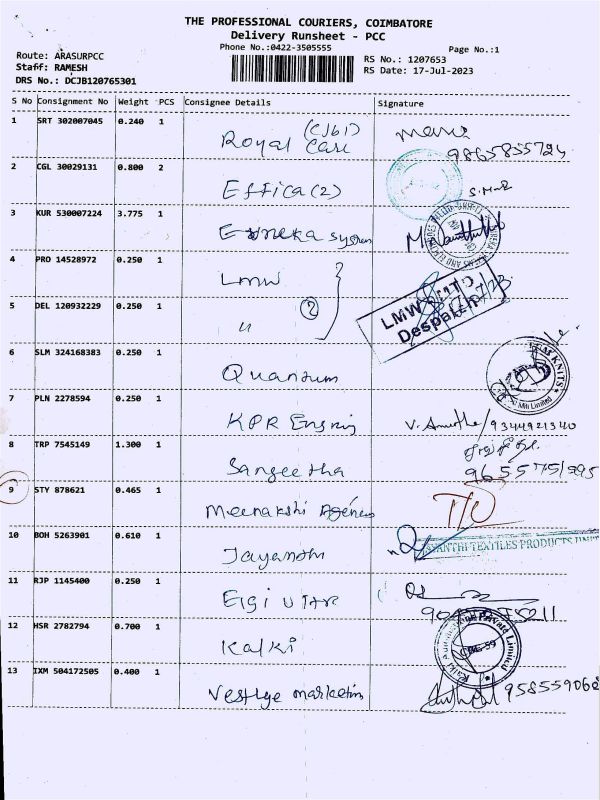 THE PROFESSIONAL COURIERS, COIMBATORE
Delivery Runsheet - PCC
Phone No.:0422-3505555
Page No.:1
Route: ARASURPCC
Staff: RAMESH
DRS No.: DCJB120765301
RS No.: 1207653
RS Date: 17-Jul-2023
S No Consignment No Weight PCS Consignee Details Signature
1 SRT 302007045 0.240 1 Royal Care 9865855724
2 CGL 30029131 0.800 2 Effica (2)
3 KUR 530007224 3.775 1 Eureka system
4 PRO 14528972 0.250 1 LMW
LMW
Despatch
5 DEL 120932229 0.250 1 " (2)
6 SLM 324168383 0.250 1 Quantum
KNITS
7 PLN 2278594 0.250 1 KPR Engring V. Amutha/9344921340
8 TRP 7545149 1.300 1 Sangeetha
9 STY 878621 0.465 1 Meenakshi
10 BOH 5263901 0.610 1 Jayanthi JAYANTHI TEXTILES PRODUCTS UNIT
11 RJP 1145400 0.250 1 Elgi
12 HSR 2782794 0.700 1 Kalki Private Limited
13 IXM 504172505 0.400 1 Vestige marketing